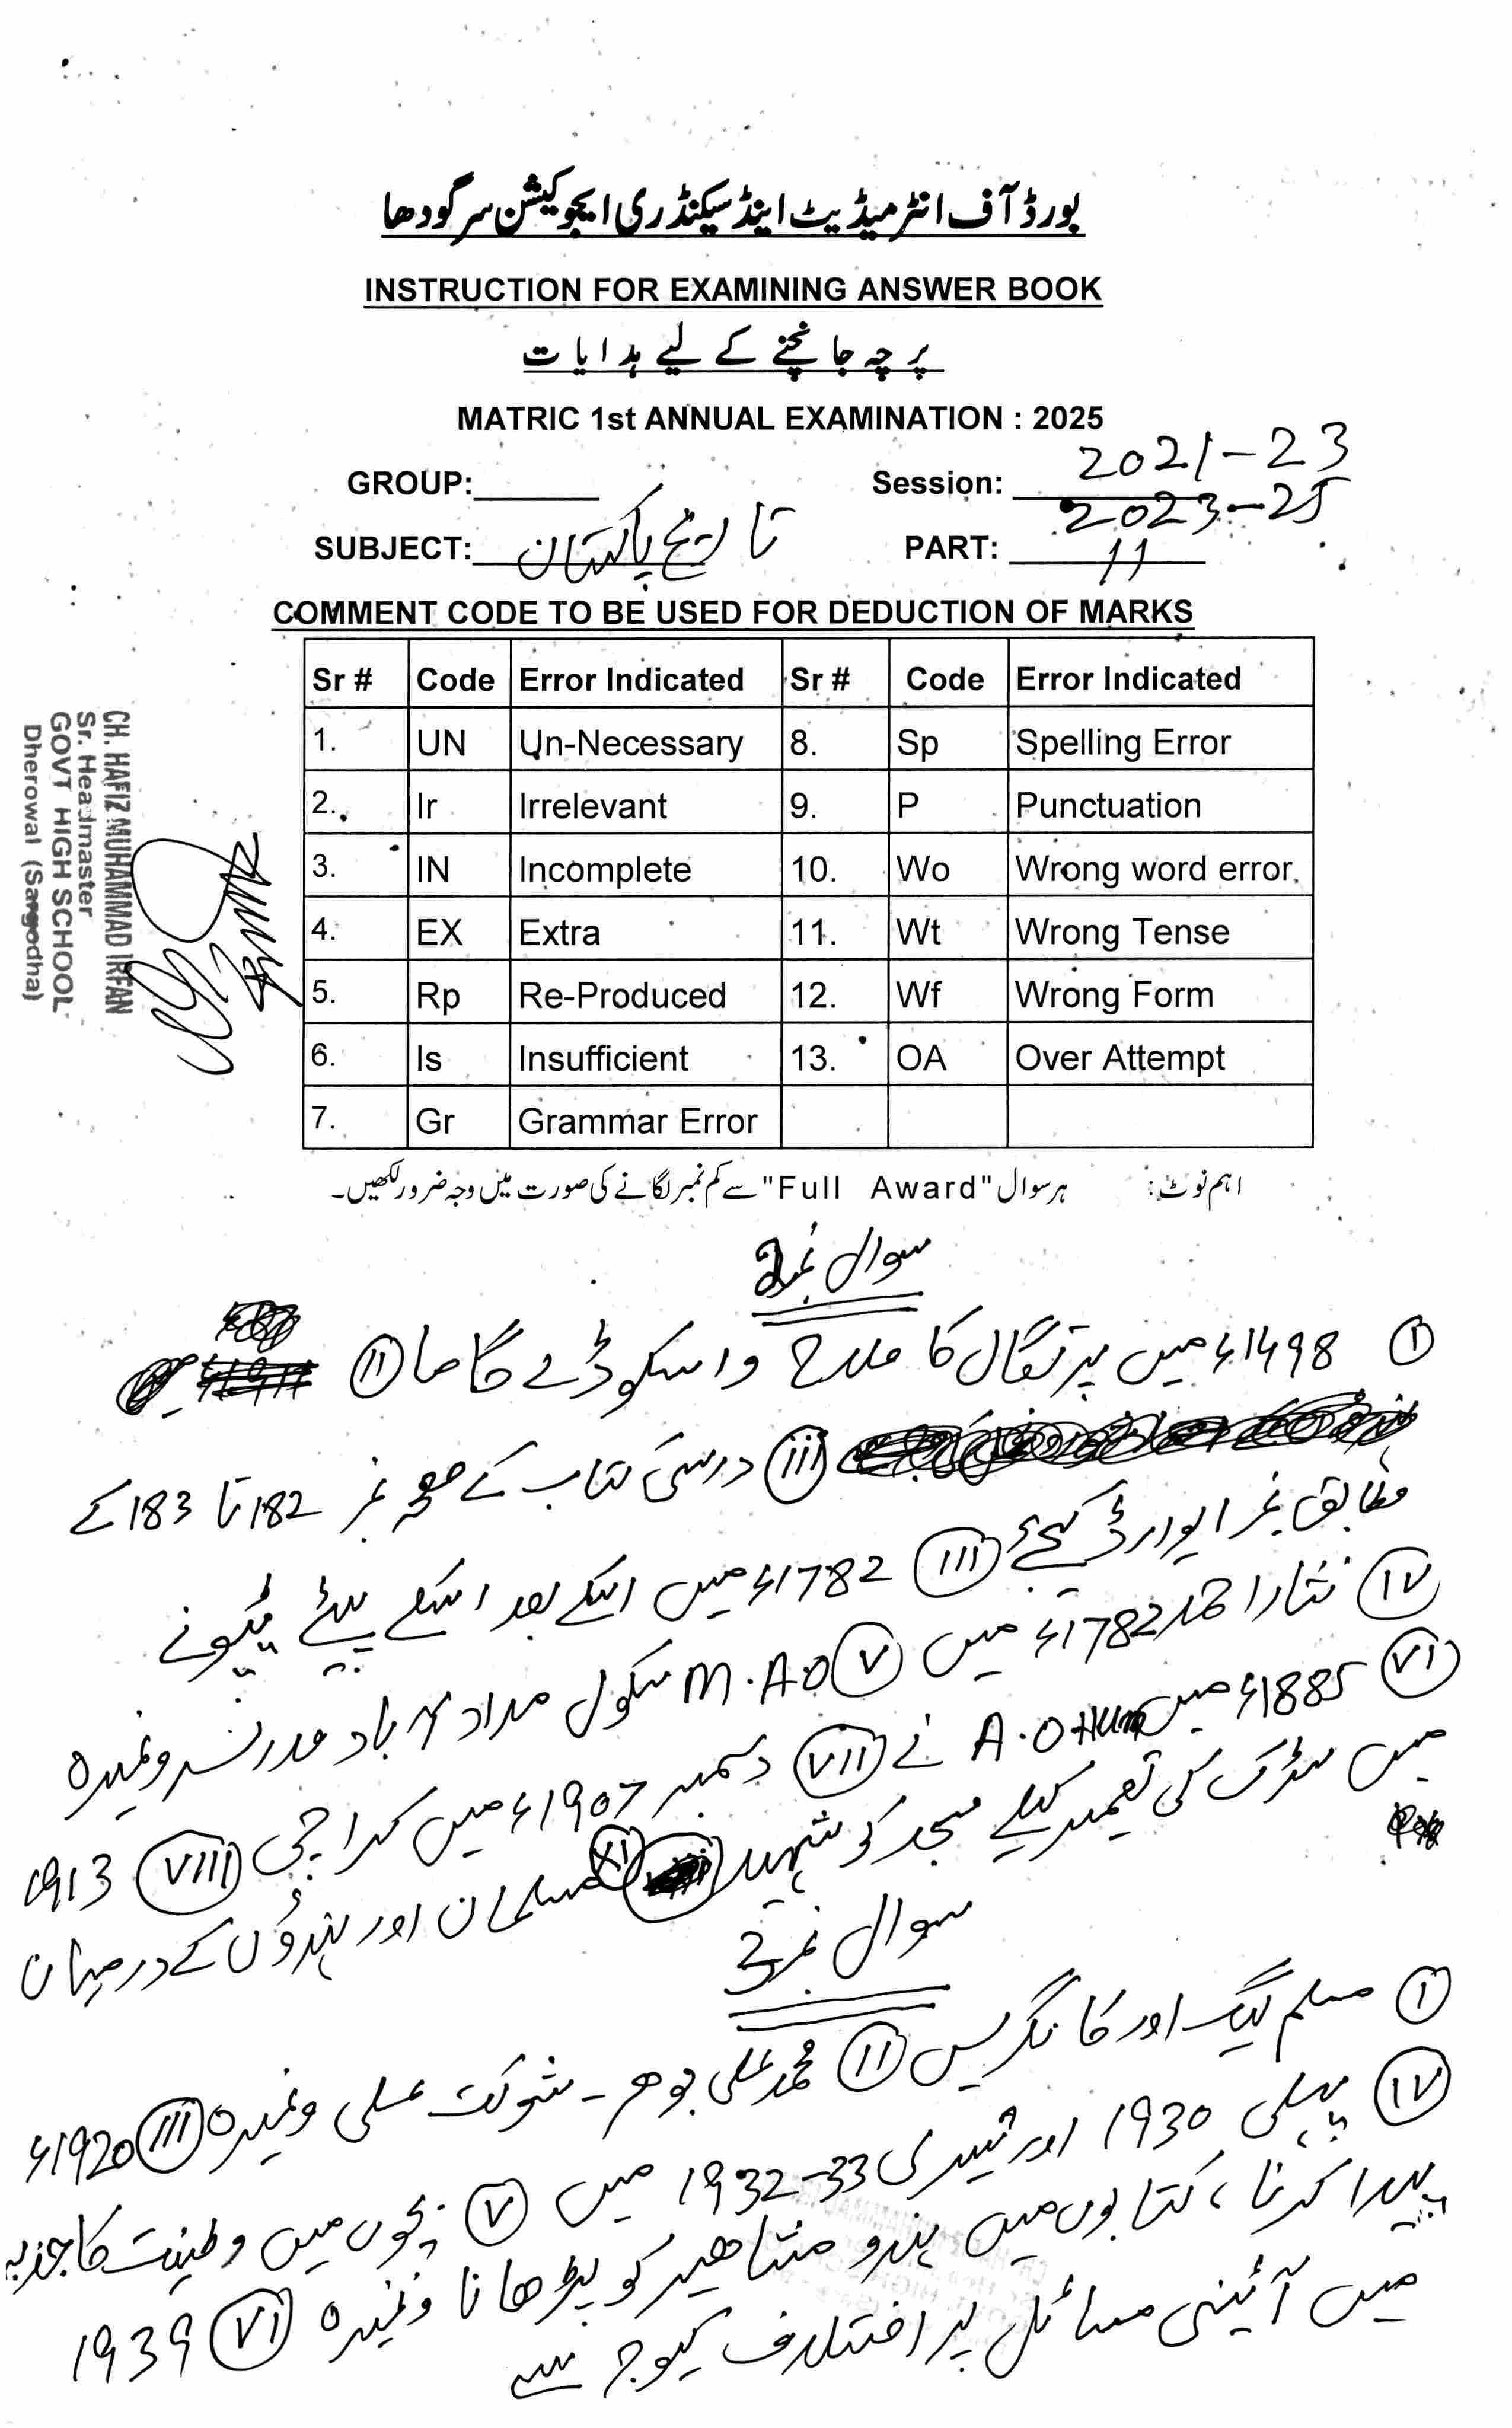 بورڈ آف انٹرمیڈیٹ اینڈ سیکنڈری ایجوکیشن سرگودھا
INSTRUCTION FOR EXAMINING ANSWER BOOK
پرچہ جانچنے کے لیے ہدایات
MATRIC 1st ANNUAL EXAMINATION : 2025
GROUP: Session: 2021-23
2023-25
SUBJECT: تاریخ پاکستان PART: 11
COMMENT CODE TO BE USED FOR DEDUCTION OF MARKS
Sr # Code Error Indicated Sr # Code Error Indicated
1. UN Un-Necessary 8. Sp Spelling Error
2. Ir Irrelevant 9. P Punctuation
3. IN Incomplete 10. Wo Wrong word error.
4. EX Extra 11. Wt Wrong Tense
5. Rp Re-Produced 12. Wf Wrong Form
6. Is Insufficient 13. OA Over Attempt
7. Gr Grammar Error
CH. HAFIZ MUHAMMAD IRFAN
Sr. Headmaster
GOVT HIGH SCHOOL
Dherowal (Sargodha)
اہم نوٹ: ہر سوال "Full Award" سے کم نمبر لگانے کی صورت میں وجہ ضرور لکھیں۔
سوال نمبر 2
(i) 1498ء میں پرتگال کا ملاح واسکوڈے گاما (ii)
(iii) درسی کتاب کے صفحہ نمبر 182 تا 183 کے
مطابق نمبر ایوارڈ کیجئے (iii) 1782ء میں اسکے بعد اسکے بیٹے ٹیپو نے
(iv) نثار احمد 1782ء میں (v) M.A.O سکول مراد آباد مدرسہ وغیرہ
(vi) 1885ء میں A.O Hum نے (vii) دسمبر 1907ء میں کراچی (viii) 1913
میں سڑک کی تعمیر کیلے مسجد کو شہید (xi) مسلمان اور ہندوؤں کے درمیان
سوال نمبر 3
(i) مسلم لیگ اور کانگریس (ii) محمد علی جوہر - شوکت علی وغیرہ (iii) 1920ء
(iv) پہلی 1930 اور تیسری 1932-33 میں (v) بچوں میں وطنیت کا جذبہ
پیدا کرنا، کتابوں میں ہندو مشاہیر کو پڑھانا وغیرہ (vi) 1939
میں آئینی مسائل پر اختلاف کیوجہ سے